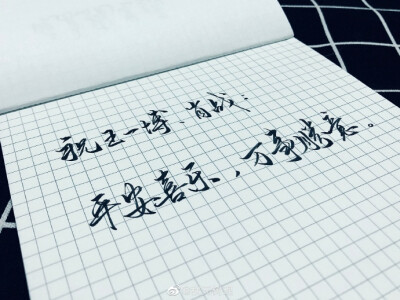 祝王一博、肖战：
平安喜乐，万事胜意。